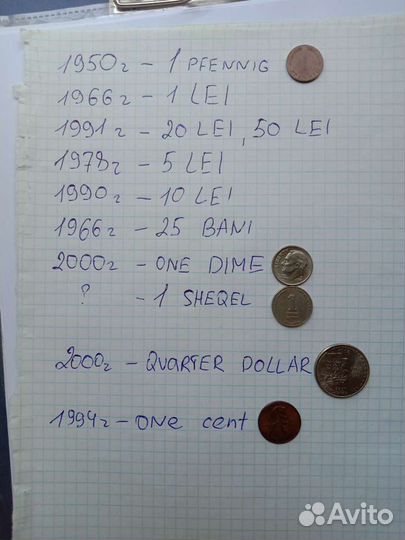 1950г - 1 PFENNIG
1966г - 1 LEI
1991г - 20 LEI, 50 LEI
1978г - 5 LEI
1990г - 10 LEI
1966г - 25 BANI
2000г - ONE DIME
? - 1 SHEQEL
2000г - QUARTER DOLLAR
1994г - ONE cent
Avito